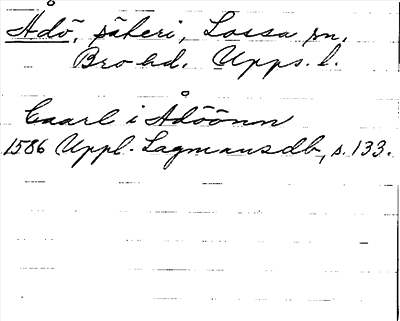 Ådö, säteri, Lossa sn.
Bro hd. Upps. l.
Caarl i Ådöönn
1586 Uppl. Lagmansdb, s. 133.